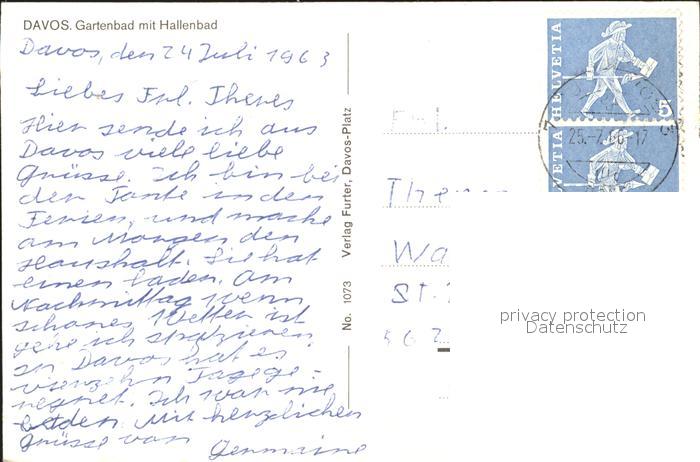 DAVOS. Gartenbad mit Hallenbad
Davos, den 24 Juli 1963
Liebes Frl. Theres
Hier sende ich aus
Davos viele liebe
Grüsse. Ich bin bei
der Tante in den
Ferien, und mache
am Morgen den
Haushalt. Sie hat
einen Laden. Am
Nachmittag wenn
schönes Wetter ist
gehe ich spatzieren.
In Davos hat es
vierzehn Tage ge-
regnet. Ich war nie
baden. Mit herzlichen
Grüsse von
Germaine
No. 1073 Verlag Furter, Davos-Platz
HELVETIA
5
HELVETIA
25.-7.66-17
Frl.
Wa
St.
562
privacy protection
Datenschutz